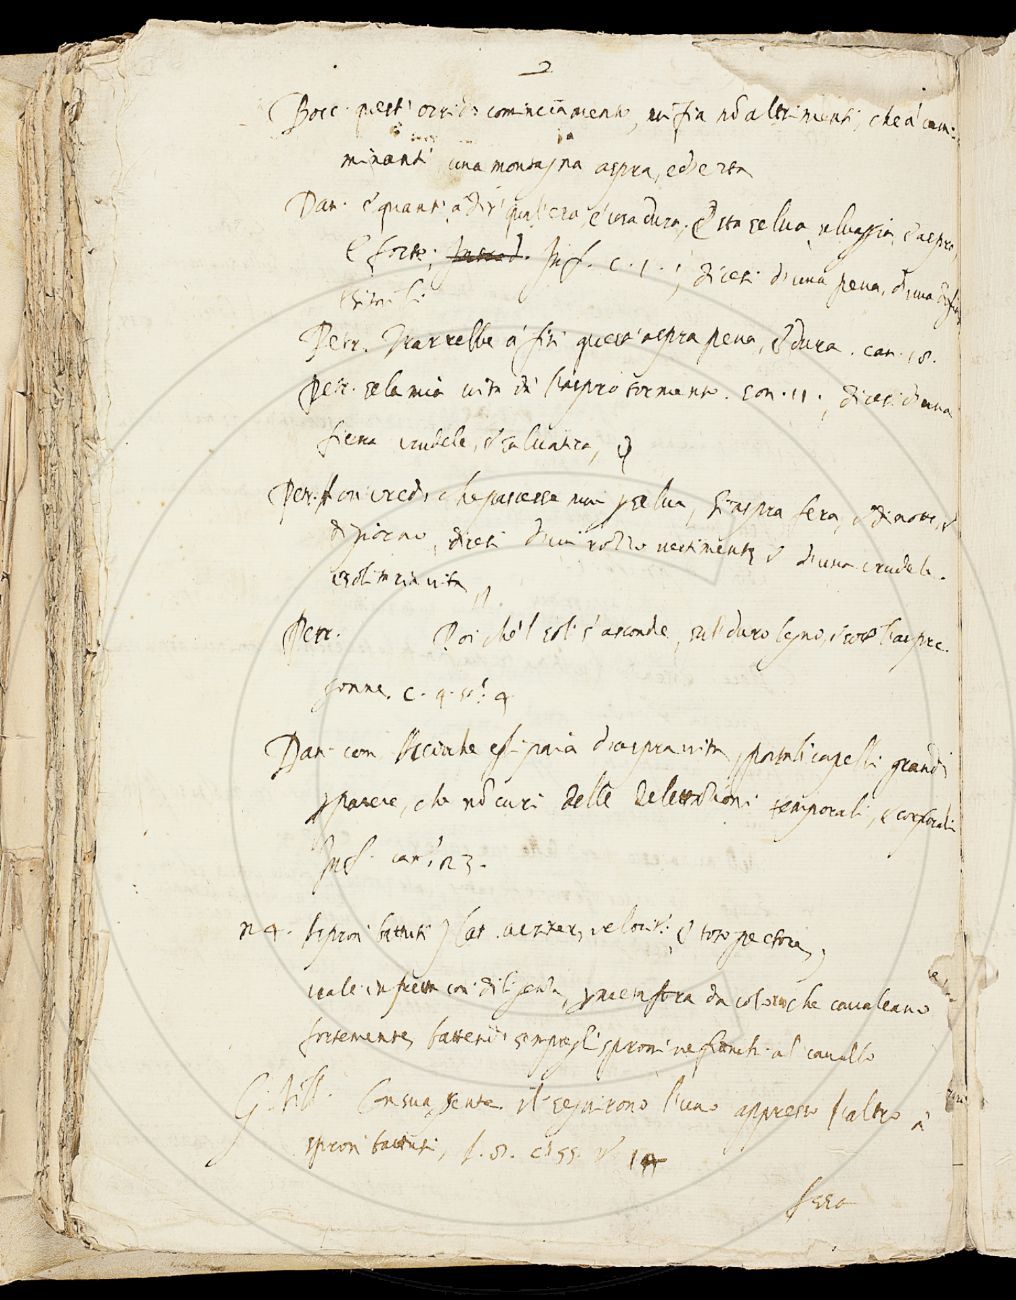 2
Bocc. quest' orrido cominciamento, vi fia nõ altrimenti, che a' cam:
minanti una montagna aspra, ed erta
Dan. e quanto a dir qual era, è cosa dura, Esta selva selvaggia, e aspra,
e forte, Inf. c. 1. ; dicesi d'una pena, d'una
e simili
Petr. Trarrebbe a fin quest' aspra pena, e dura. can. 18.
Petr. se la mia vita da l'aspro tormento. son. 11. ; dicesi d'una
fiera crudele, e salvatica,
Petr. non credo che pascesse mai p selva, Sì aspra fera, o di notte, o
di giorno, dicesi d'un rozzo vestimento, e d'una crudele.
e solitaria vita
Petr. Poi che'l sol s'asconde, sul duro legno, e sotto l'aspre
gonne. c. 4. st. 4
Dan. com. Acciocche egli paia d'aspra vita, porta li capelli grandi
p parere, che nõ curi delle delettationi temporali, e corporali
Inf. can. 23.
n 4. a sproni battuti lat. velociter, e toto pectore,
vale in fretta con diligenza, p metafora da coloro che cavalcano
fortemente, battendo sempre gli sproni ne fianchi al cavallo
G. Vill. Con sua gente il seguirono l'uno appresso l'altro a
sproni battuti, l. 8. c. 55.